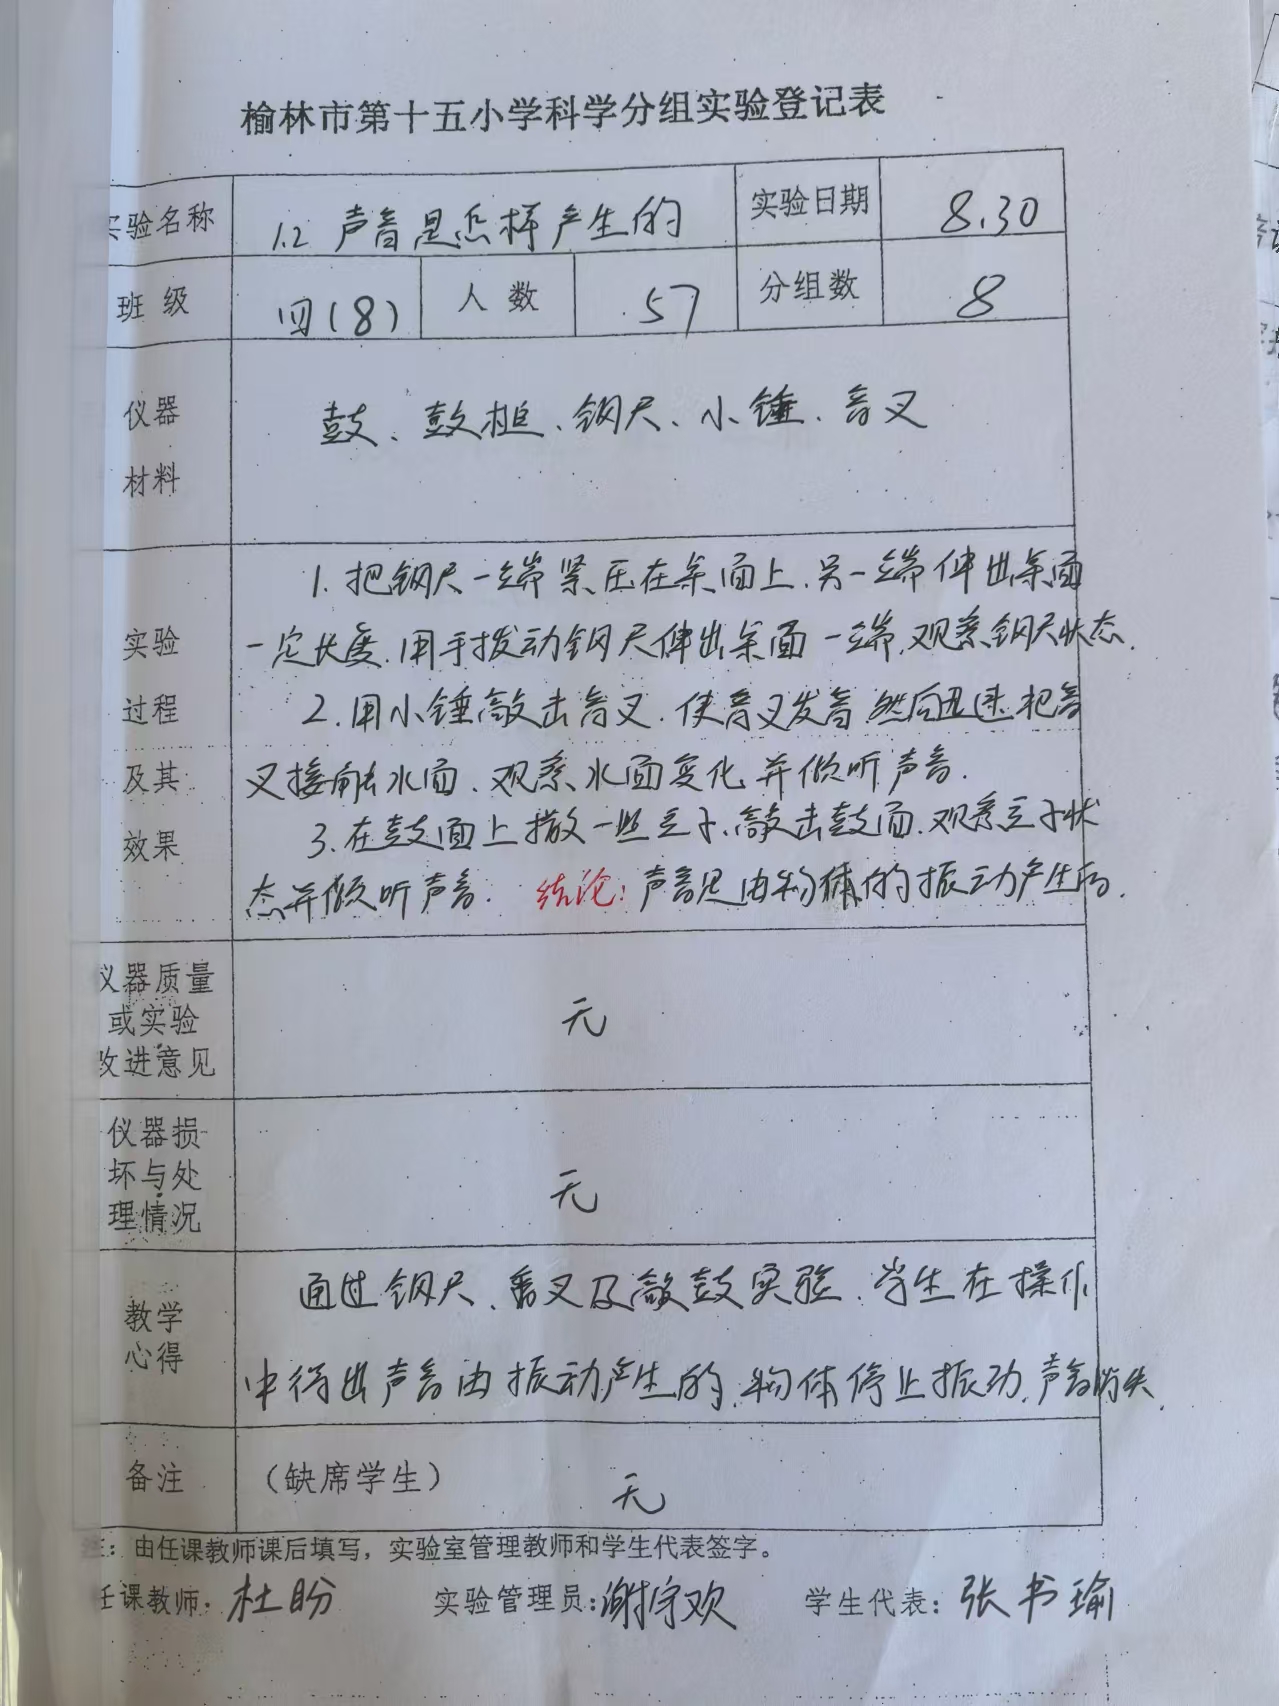 榆林市第十五小学科学分组实验登记表
实验名称 1.2 声音是怎样产生的 实验日期 8.30
班级 四(8) 人数 57 分组数 8
仪器
材料
鼓、鼓槌、钢尺、小锤、音叉
实验
过程
及其
效果
1. 把钢尺一端紧压在桌面上,另一端伸出桌面
一定长度,用手拨动钢尺伸出桌面一端,观察钢尺状态.
2. 用小锤敲击音叉.使音叉发音,然后迅速把音
叉接触水面.观察水面变化并倾听声音.
3. 在鼓面上撒一些豆子,敲击鼓面,观察豆子状
态并倾听声音. 结论:声音是由物体的振动产生的.
仪器质量
或实验
改进意见
无
仪器损
坏与处
理情况
无
教学
心得
通过钢尺、音叉及敲鼓实验,学生在操作
中得出声音由振动产生的,物体停止振动,声音消失.
备注 (缺席学生) 无
注:由任课教师课后填写,实验室管理教师和学生代表签字。
任课教师:杜盼 实验管理员:谢宇欢 学生代表:张书瑜